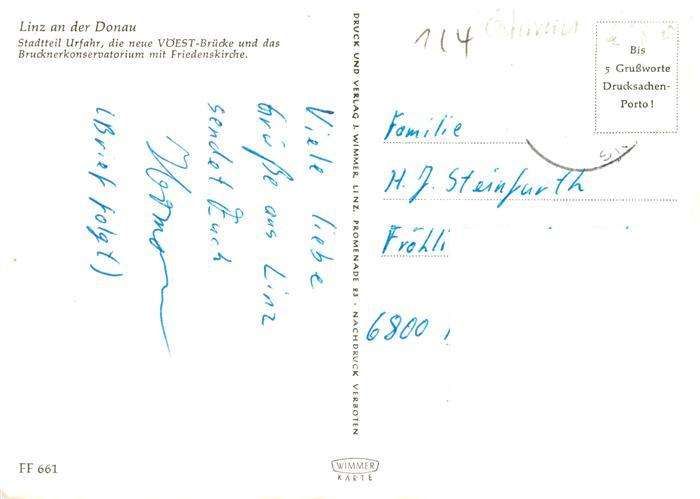 Linz an der Donau
Stadtteil Urfahr, die neue VÖEST-Brücke und das
Brucknerkonservatorium mit Friedenskirche.
Viele liebe
Grüße aus Linz
sendet Euch
(Brief folgt)
FF 661
DRUCK UND VERLAG J. WIMMER, LINZ, PROMENADE 23 · NACHDRUCK VERBOTEN
WIMMER
KARTE
114
Bis
5 Grußworte
Drucksachen-
Porto!
Familie
H. J. Steinfurth
Fröhli
6800